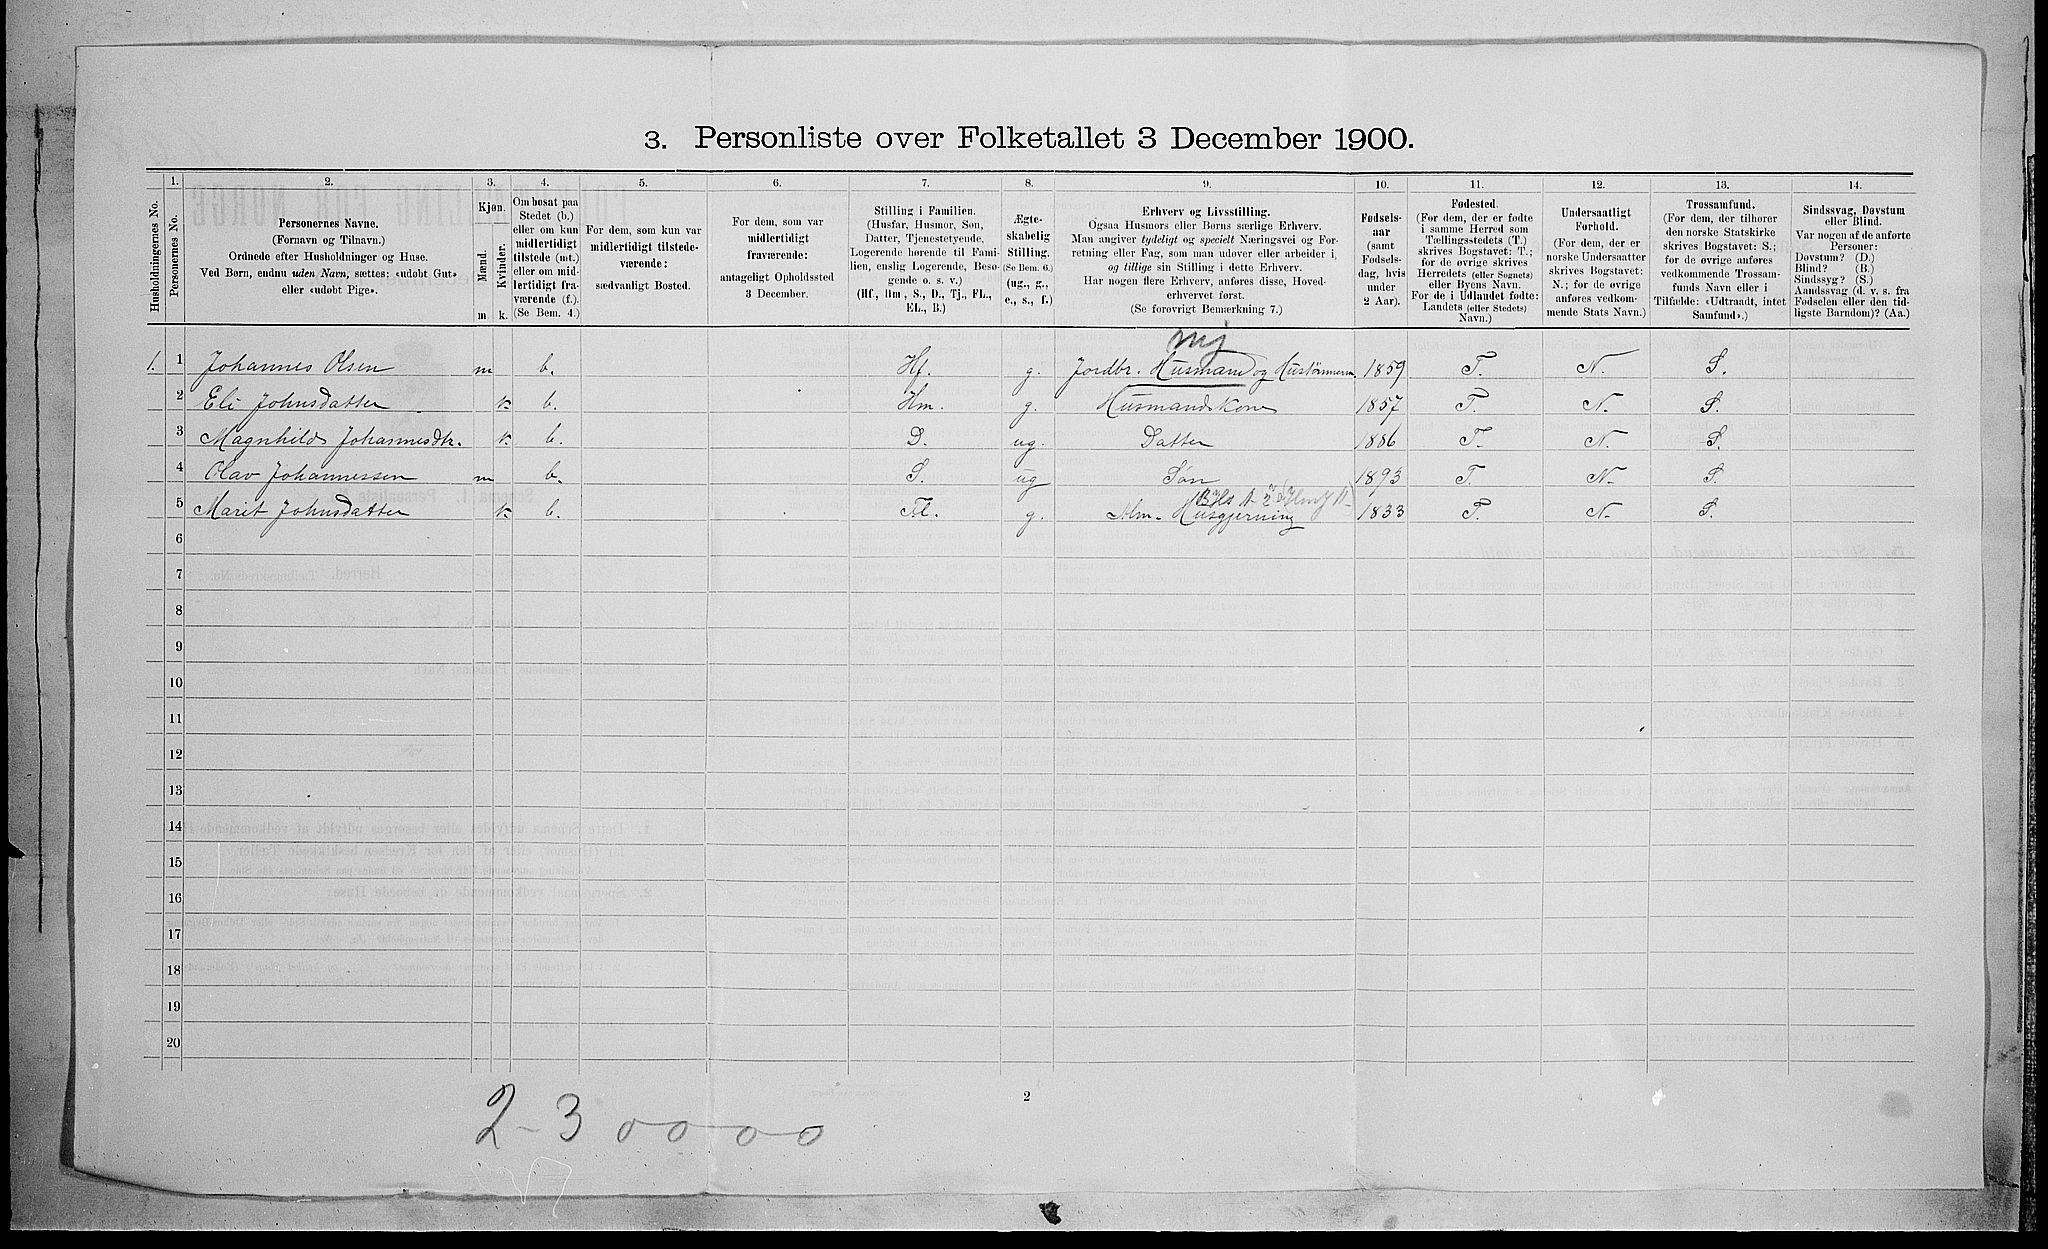 3. Personliste over Folketallet 3 December 1900.
Husholdningernes No.
1. Personernes No.
2. Personernes Navne.
(Fornavn og Tilnavn.)
Ordnede efter Husholdninger og Huse.
Ved Børn, endnu uden Navn, sættes: «udøbt Gut»
eller «udøbt Pige».
3. Kjøn.
Mænd. Kvinder.
m k.
4.
Om bosat paa
Stedet (b.)
eller om kun
midlertidigt
tilstede (mt.)
eller om mid-
lertidigt fra-
værende (f.).
(Se Bem. 4.)
5.
For dem, som kun var
midlertidigt tilstede-
værende:
sædvanligt Bosted.
6.
For dem, som var
midlertidigt
fraværende:
antageligt Opholdssted
3 December.
7.
Stilling i Familien.
(Husfar, Husmor, Søn,
Datter, Tjenestetyende,
Logerende hørende til Fami-
lien, enslig Logerende, Besø-
gende o. s. v.)
(Hf., Hm., S., D., Tj., FL.,
EL., B.)
8.
Ægte-
skabelig
Stilling.
(Se Bem. 6.)
(ug., g.,
e., s., f.)
9.
Erhverv og Livsstilling.
Ogsaa Husmors eller Børns særlige Erhverv.
Man angiver tydeligt og specielt Næringsvei og For-
retning eller Fag, som man udøver eller arbeider i,
og tillige sin Stilling i dette Erhverv.
Har nogen flere Erhverv, anføres disse, Hoved-
erhvervet først.
(Se forøvrigt Bemærkning 7.)
10.
Fødsels-
aar
(samt
Fødsels-
dag, hvis
under
2 Aar).
11.
Fødested.
(For dem, der er fødte
i samme Herred som
Tællingsstedets (T.)
skrives Bogstavet: T.;
for de øvrige skrives
Herredets (eller Sognets)
eller Byens Navn.
For de i Udlandet fødte:
Landets (eller Stedets)
Navn.)
12.
Undersaatligt
Forhold.
(For dem, der er
norske Undersaatter
skrives Bogstavet:
N.; for de øvrige
anføres vedkom-
mende Stats Navn.)
13.
Trossamfund.
(For dem, der tilhører
den norske Statskirke
skrives Bogstavet: S.;
for de øvrige anføres
vedkommende Trossam-
funds Navn eller i
Tilfælde: «Udtraadt, intet
Samfund».)
14.
Sindssvag, Døvstum
eller Blind.
Var nogen af de anførte
Personer:
Døvstum? (D.)
Blind? (B.)
Sindssyg? (S.)
Aandssvag (d. v. s. fra
Fødselen eller den tid-
ligste Barndom)? (Aa.)
1. 1 Johannes Olsen m b. Hf. g. Jordbr. Husmand og Hustømmerm. 1859 T. N. S.
2 Eli Johnsdatter k b. Hm. g. Husmandskone 1857 T. N. S.
3 Magnhild Johannesdtr. k b. D. ug. Datter 1886 T. N. S.
4 Olav Johannessen m b. S. ug Søn 1893 T. N. S.
5 Marit Johnsdatter k b. Fl. g. Alm. Husgjerning 1833 T. N. S.
6
7
8
9
10
11
12
13
14
15
16
17
18
19
20
2
2-3 00-00